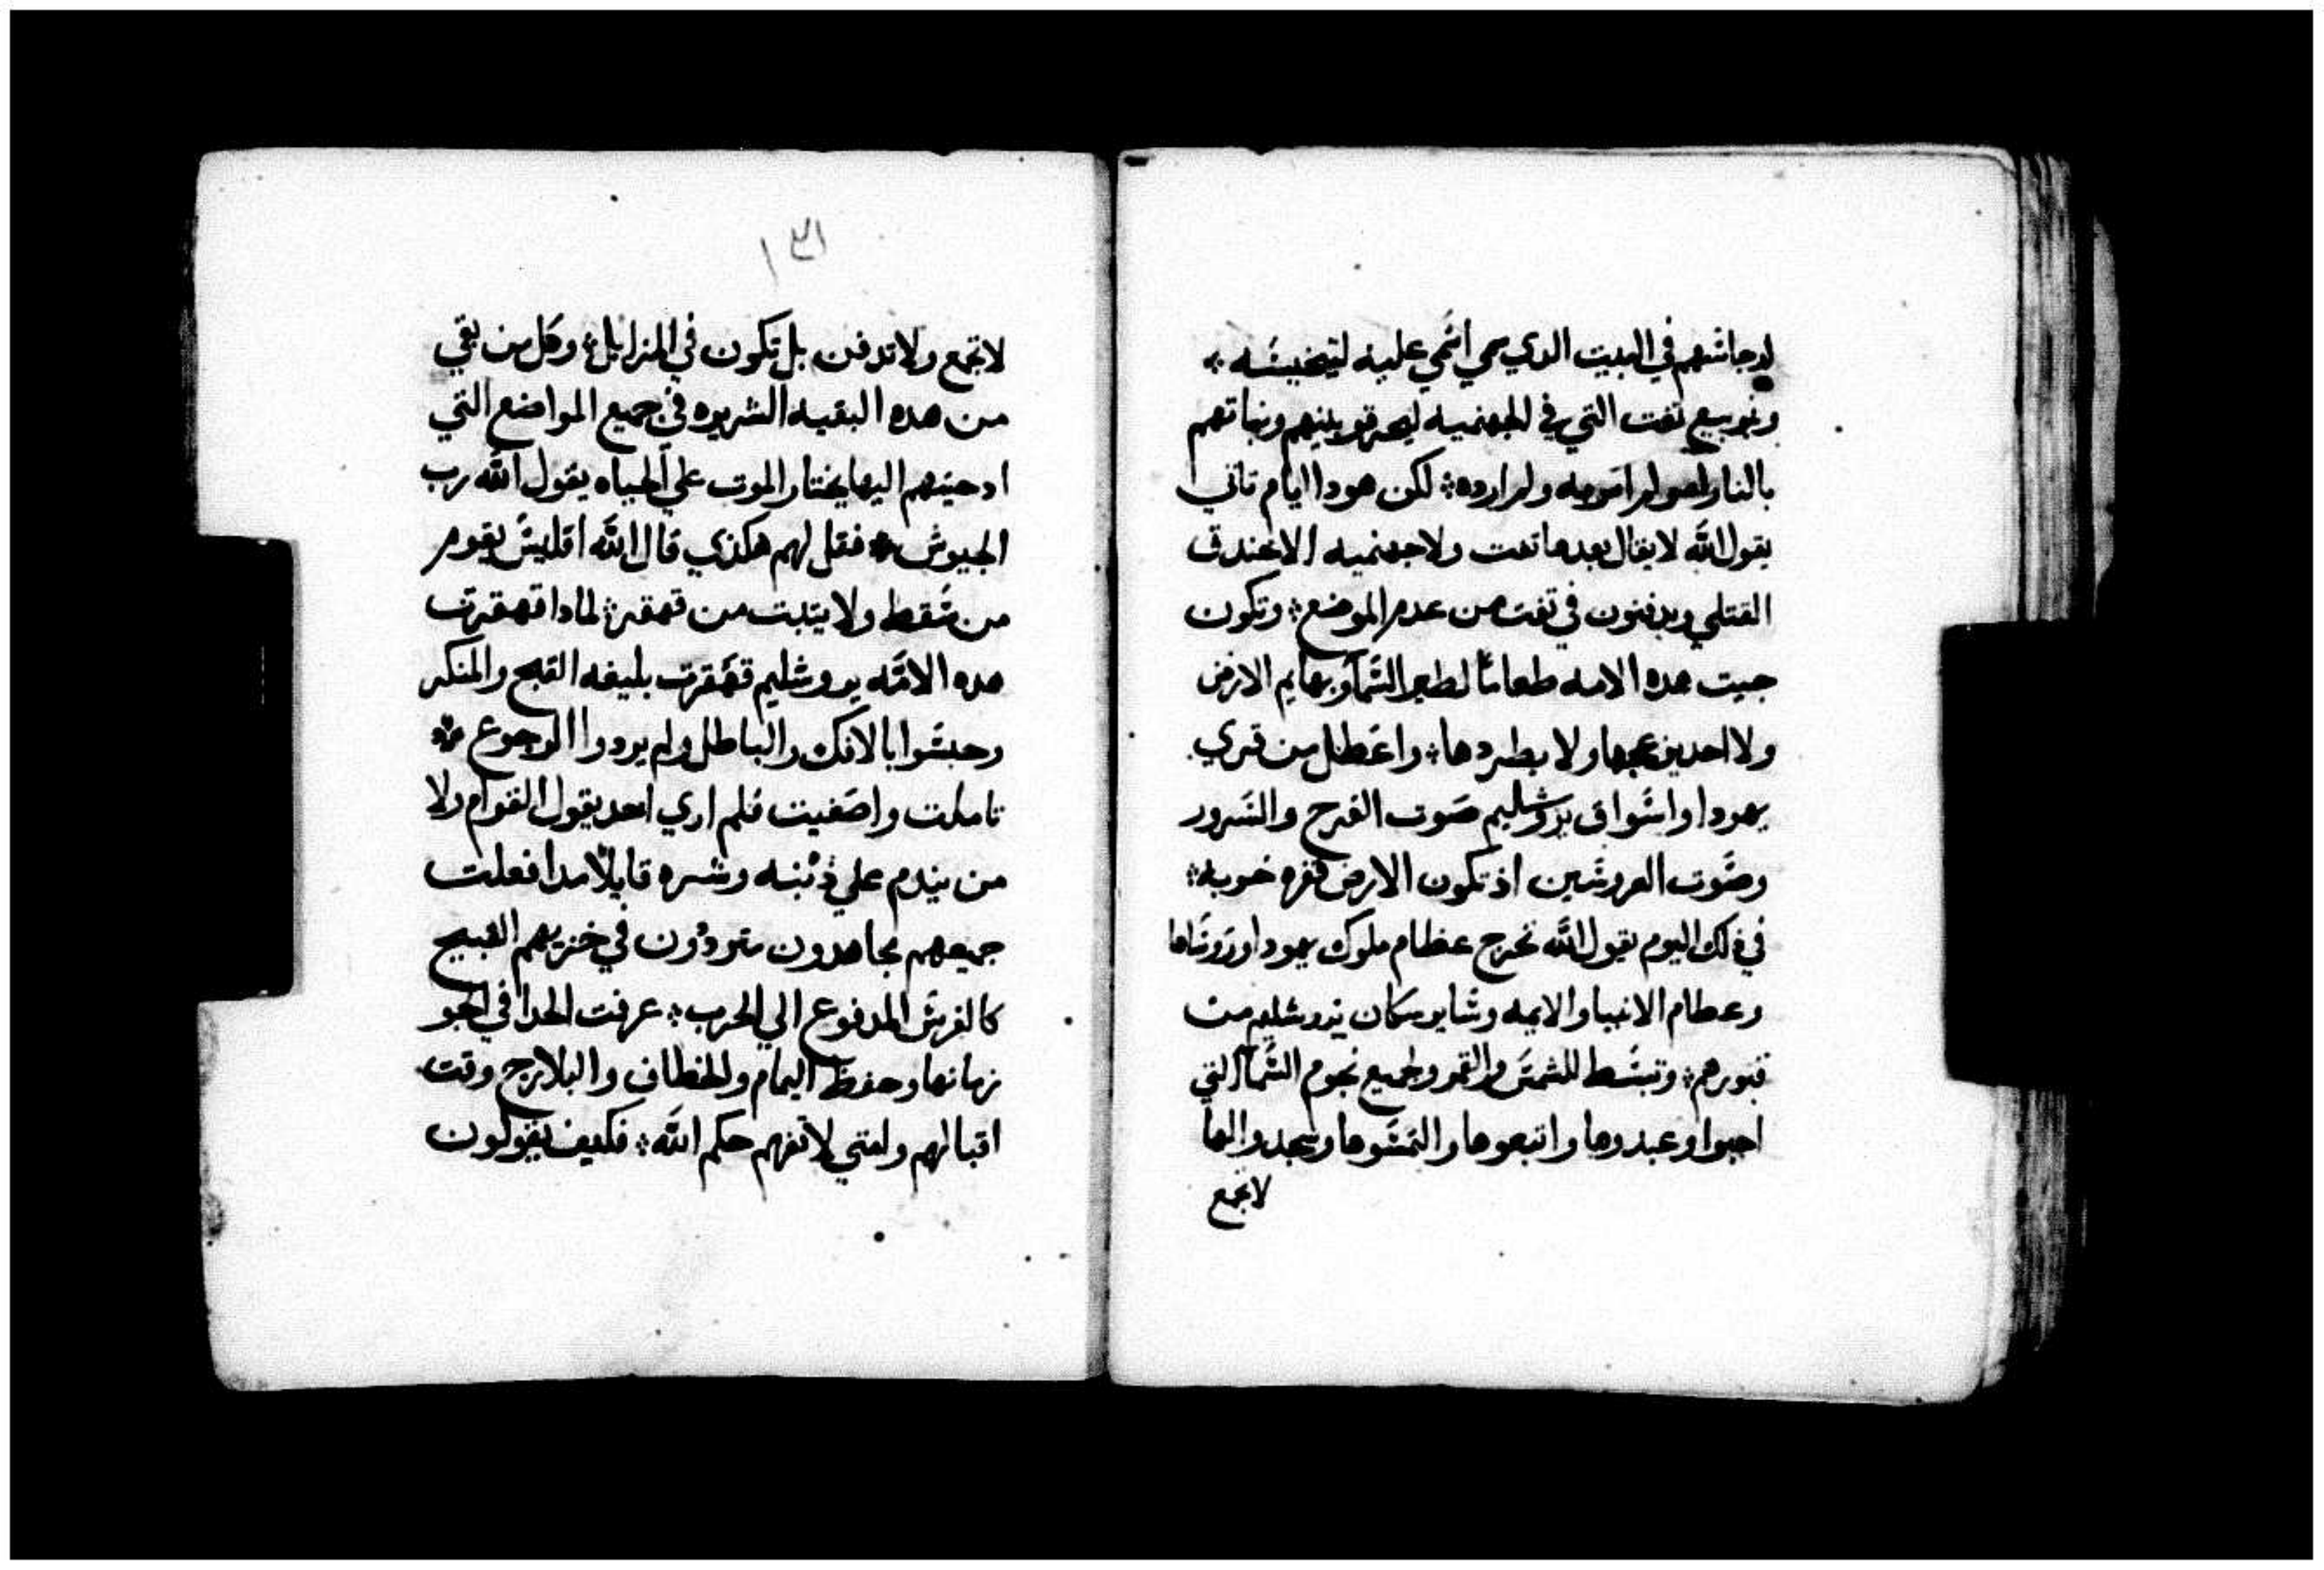 ارجاسهم في البيت الدي سمي اسَمي عليه لينجيسَه ؞
بيع تفت التي في الجهنميه ليحرقو بنيهم وبناتهم
بالنار امرا مر به ولم ارده ؞ لكن هودا ايام تاتي
يقول الله لا يقال بعدها تفت ولا جهنميه الا خندق
القتلي ويدفنون في تفت من عدم الموضع ؞ وتكون
جيت هده الامه طعامًا لطير السَما وبهايم الارض
ولا احد يزعجها ولا يطردها ؞ واعَطل من قري
يهودا واسَواق يروشليم صَوت الفرح والسَرور
وصَوت العروسَين اذ تكون الارض قفره خربه ؞
في ذلك اليوم يقول الله تخرج عظام ملوك يهودا وروسَاها
وعطام الانبيا والايمه وسَاير سكان يروشليم من
قبورهم ؞ وتبسَط للشمسَ والقمر ولجميع نجوم السَما التي
احبوا وعبدوها واتبعوها والتمسَوها وسجدوا لها
لا تجمع
١٣١
لا تجمع ولا تدفن بل تكون في المزابل ؞ وكل من بقي
من هده البقيه الشريره في جميع المواضع التي
ادحيتهم اليها يختار الموت علي الحياه يقول الله رب
الجيوش ؞ فقل لهم هكذي قال الله افليسَ يقوم
من سَقط ولا يتبت من قهقر ؞ لمادا قهقرت
هده الامَه يروشليم قهَقرت بليغه القبح والمنكر
وحبسَوا بالافك والباطل ولم يردوا الرجوع ؞
تاملت واصَغيت فلم اري احد يقول القوام ولا
من يندم علي ذنبه وشره قايلًا مدا فعلت
جميعهم مجاهدون مترددون في خزيهم القبيح
كالفرسَ المدفوع الي الحرب ؞ عرفت الحدا في الجو
زمانها وحفظ اليمام والخطاف والبلارج وقت
اقبالهم وامتي لا تفهم حكم الله ؞ فكيف يقولون